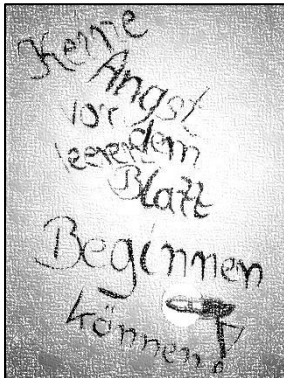 Keine
Angst
vor dem
leeren
Blatt
Beginnen
können!